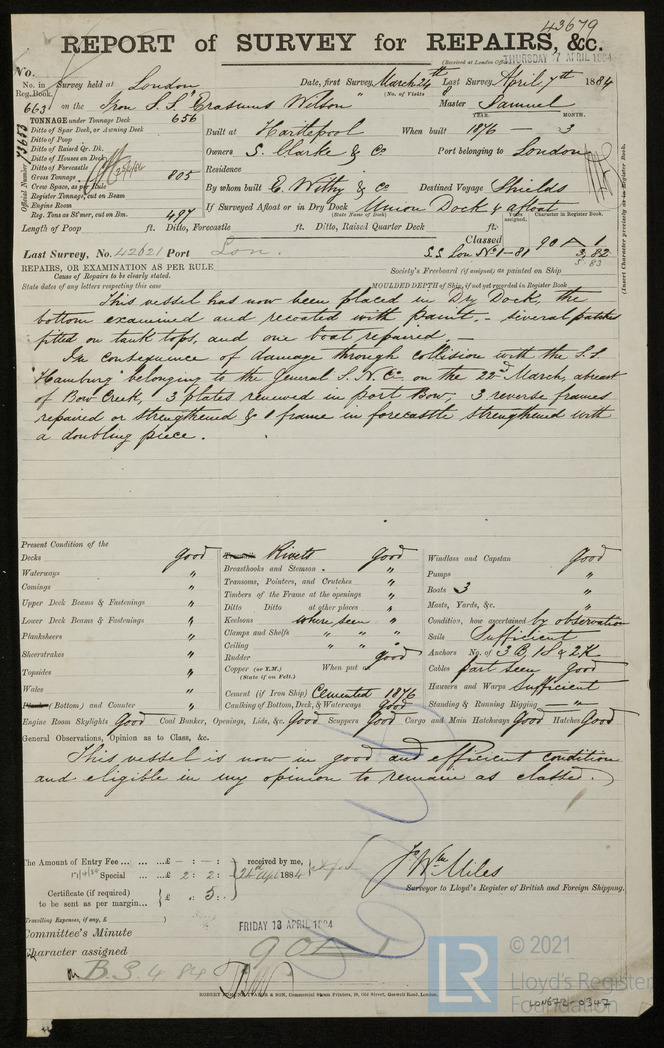 43679
REPORT of SURVEY for REPAIRS, &c.
(Received at London Office
THURSDAY 17 APRIL 1884
No.
No. in Reg. Book. Survey held at London Date, first Survey March 24th Last Survey April 7th 1884
(No. of Visits 8
663 on the Iron S.S. "Erasmus Wilson" Master Samuel
TONNAGE under Tonnage Deck 656
YEAR. MONTH.
Ditto of Spar Deck, or Awning Deck
Built at Hartlepool When built 1876 — 3
Ditto of Poop
Ditto of Raised Qr. Dk.
Owners S. Clarke & Co Port belonging to London
Ditto of Houses on Deck
Ditto of Forecastle
Residence
Gross Tonnage 805
Crew Space, as per Rule
By whom built E. Withy & Co Destined Voyage Shields
Register Tonnage, cut on Beam
Engine Room
If Surveyed Afloat or in Dry Dock Union Dock & afloat
(State Name of Dock)
Years assigned. Character in Register Book.
Reg. Tons as St'mer, cut on Bm. 497
Official Number 73653
(Insert Character precisely as in Register Book.
Length of Poop ft. Ditto, Forecastle ft. Ditto, Raised Quarter Deck ft.
Classed 90 A 1
Last Survey, No. 42621 Port Lon. S.S. Lon No 1-81 3,82
5 83
REPAIRS, OR EXAMINATION AS PER RULE
Society's Freeboard (if assigned) as painted on Ship
Cause of Repairs to be clearly stated.
State dates of any letters respecting this case
MOULDED DEPTH of Ship, if not yet recorded in Register Book
This vessel has now been placed in Dry Dock, the
bottom examined and recoated with paint. — several patches
fitted on tank tops, and one boat repaired. —
In consequence of damage through collision with the S.S.
"Hamburg" belonging to the General S. N. Co on the 22nd March, abreast
of Bow Creek, 3 plates renewed in port Bow, 3 reverse frames
repaired or strengthened & 1 frame in forecastle strengthened with
a doubling piece.
Present Condition of the
Decks good
Waterways "
Comings "
Upper Deck Beams & Fastenings "
Lower Deck Beams & Fastenings "
Planksheers "
Sheerstrakes "
Topsides "
Wales "
Plank (Bottom) and Counter "
Treenails Rivets good
Breasthooks and Stemson "
Transoms, Pointers, and Crutches "
Timbers of the Frame at the openings "
Ditto Ditto at other places "
Keelsons where seen "
Clamps and Shelfs " " "
Ceiling " " "
Rudder good
Copper (or Y.M.) When put on
(State if on Felt.)
Cement (if Iron Ship) Cemented 1876
Caulking of Bottom, Deck, & Waterways good
Windlass and Capstan good
Pumps "
Boats 3 "
Masts, Yards, &c. "
Condition, how ascertained by observation
Sails Sufficient
Anchors No. of 3 B, 1 S & 2 K
Cables part seen good
Hawsers and Warps Sufficient
Standing & Running Rigging — " —
Engine Room Skylights Good Coal Bunker, Openings, Lids, &c. Good Scuppers Good Cargo and Main Hatchways Good Hatches Good
General Observations, Opinion as to Class, &c.
This vessel is now in good and efficient condition
and eligible in my opinion to remain as classed.
The Amount of Entry Fee ... £ - : - :
Special ... £ 2 : 2 :
received by me,
24th Apl 1884
Certificate (if required) to be sent as per margin... £ . 5 :
Travelling Expenses, if any, £
Jo Wm Miles
Surveyor to Lloyd's Register of British and Foreign Shipping.
Committee's Minute FRIDAY 18 APRIL 1884
Character assigned 90 A
B.S. 4 84
London.
LR © 2021
Lloyd's Register
Foundation
LON672-0347